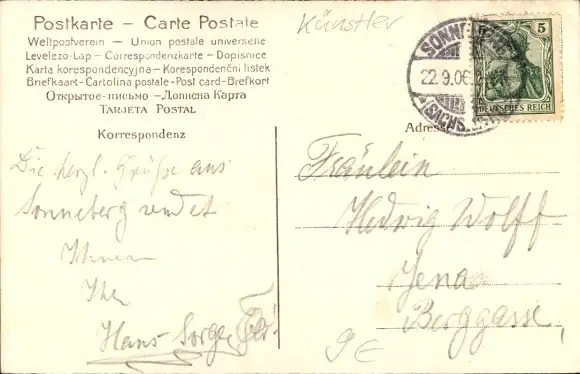 Postkarte — Carte Postale
Weltpostverein — Union postale universelle
Levelező-Lap — Correspondenzkarte — Dopisnice
Karta korespondencyjna — Korespondenční listek
Briefkaart - Cartolina postale - Post card - Brefkort
Открытое-письмо — Дописна Карта
Tarjeta Postal
Künstler
SONNEBERG
22.9.06
SACHS.
5
DEUTSCHES REICH
Korrespondenz
Die herzl. Grüße aus
Sonneberg sendet
Ihnen
Ihr
Hans Sorge
Adresse
Fräulein
Hedwig Wolff
Jena
Berggasse,
9